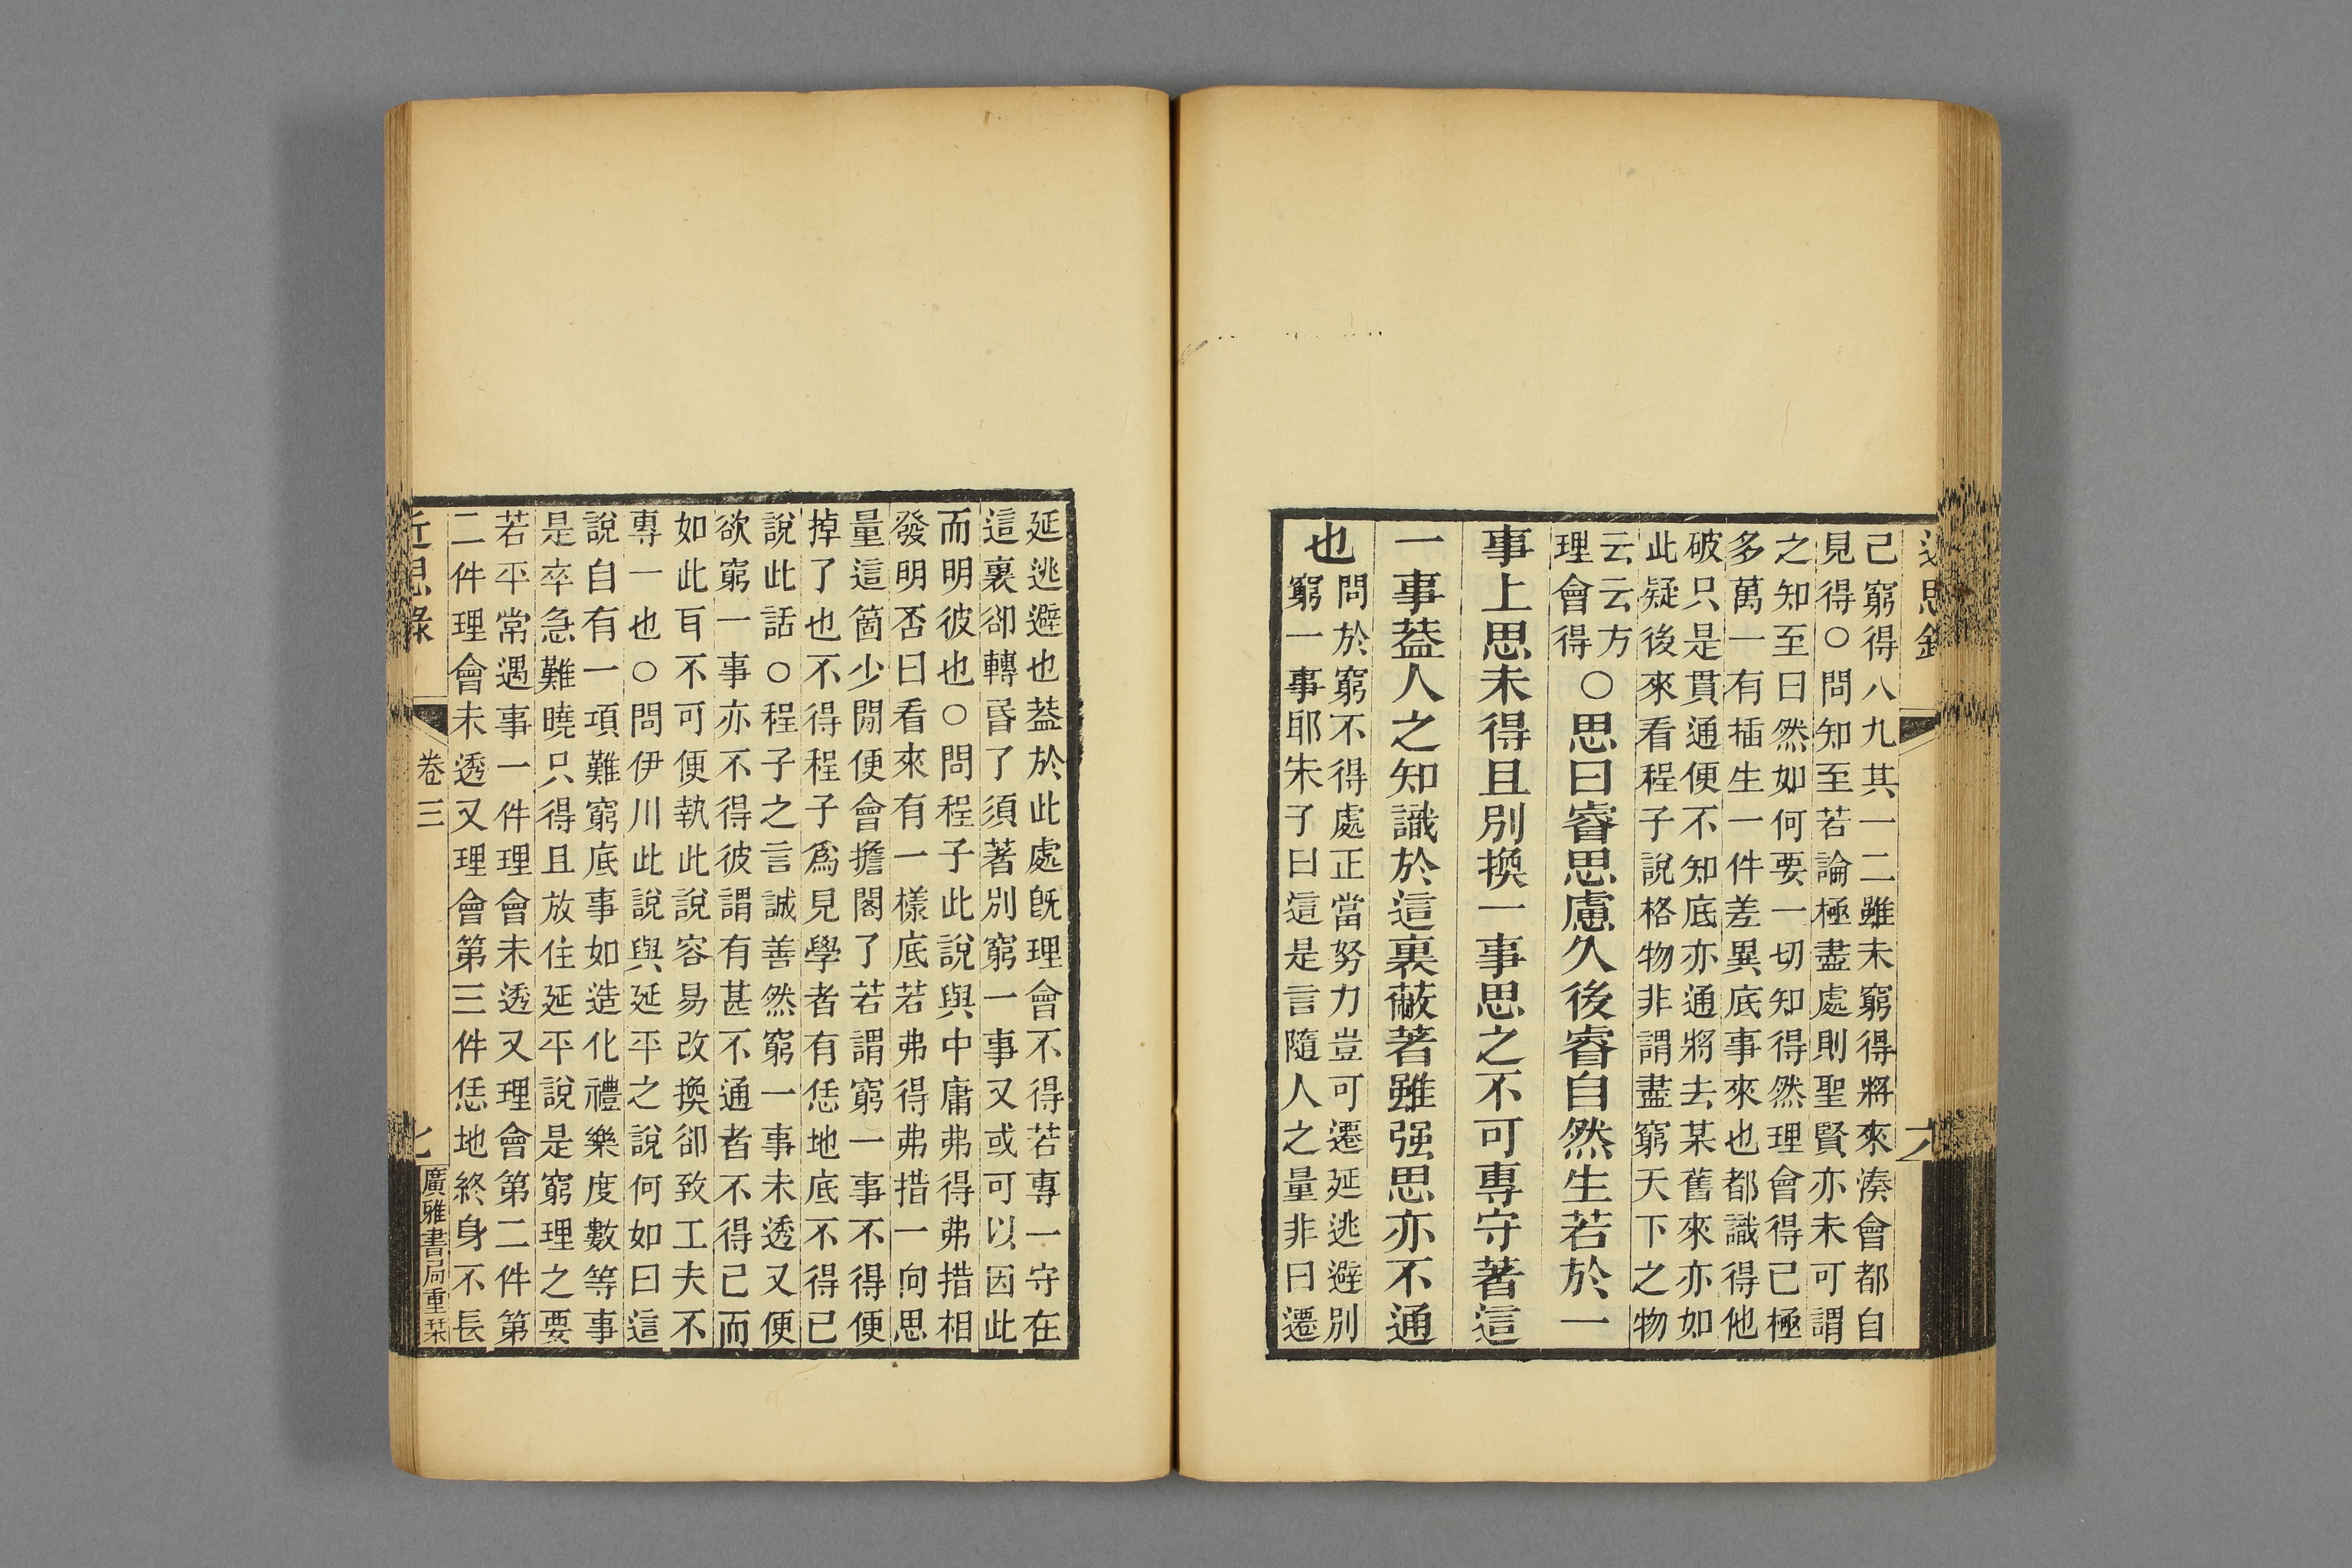 近思錄
己窮得八九其一二雖未窮得將來湊會都自
見得○問知至若論極盡處則聖賢亦未可謂
之知至曰然如何要一切知得然理會得已極
多萬一有插生一件差異底事來也都識得他
破只是貫通便不知底亦通將去某舊來亦如
此疑後來看程子說格物非謂盡窮天下之物
云云方
理會得
○思曰睿思慮久後睿自然生若於一
事上思未得且別換一事思之不可專守著這
一事葢人之知識於這裏蔽著雖强思亦不通
也
問於窮不得處正當努力豈可遷延逃避別
窮一事耶朱子曰這是言隨人之量非曰遷
延逃避也葢於此處旣理會不得若專一守在
這裏卻轉昏了須著別窮一事又或可以因此
而明彼也○問程子此說與中庸弗得弗措相
發明否曰看來有一樣底若弗得弗措一向思
量這箇少閒便會擔閣了若謂窮一事不得便
掉了也不得程子爲見學者有恁地底不得已
說此話○程子之言誠善然窮一事未透又便
欲窮一事亦不得彼謂有甚不通者不得已而
如此耳不可便執此說容易改換卻致工夫不
專一也○問伊川此說與延平之說何如曰這
說自有一項難窮底事如造化禮樂度數等事
是卒急難曉只得且放住延平說是窮理之要
若平常遇事一件理會未透又理會第二件第
二件理會未透又理會第三件恁地終身不長
近思錄
卷三
七
廣雅書局重栞